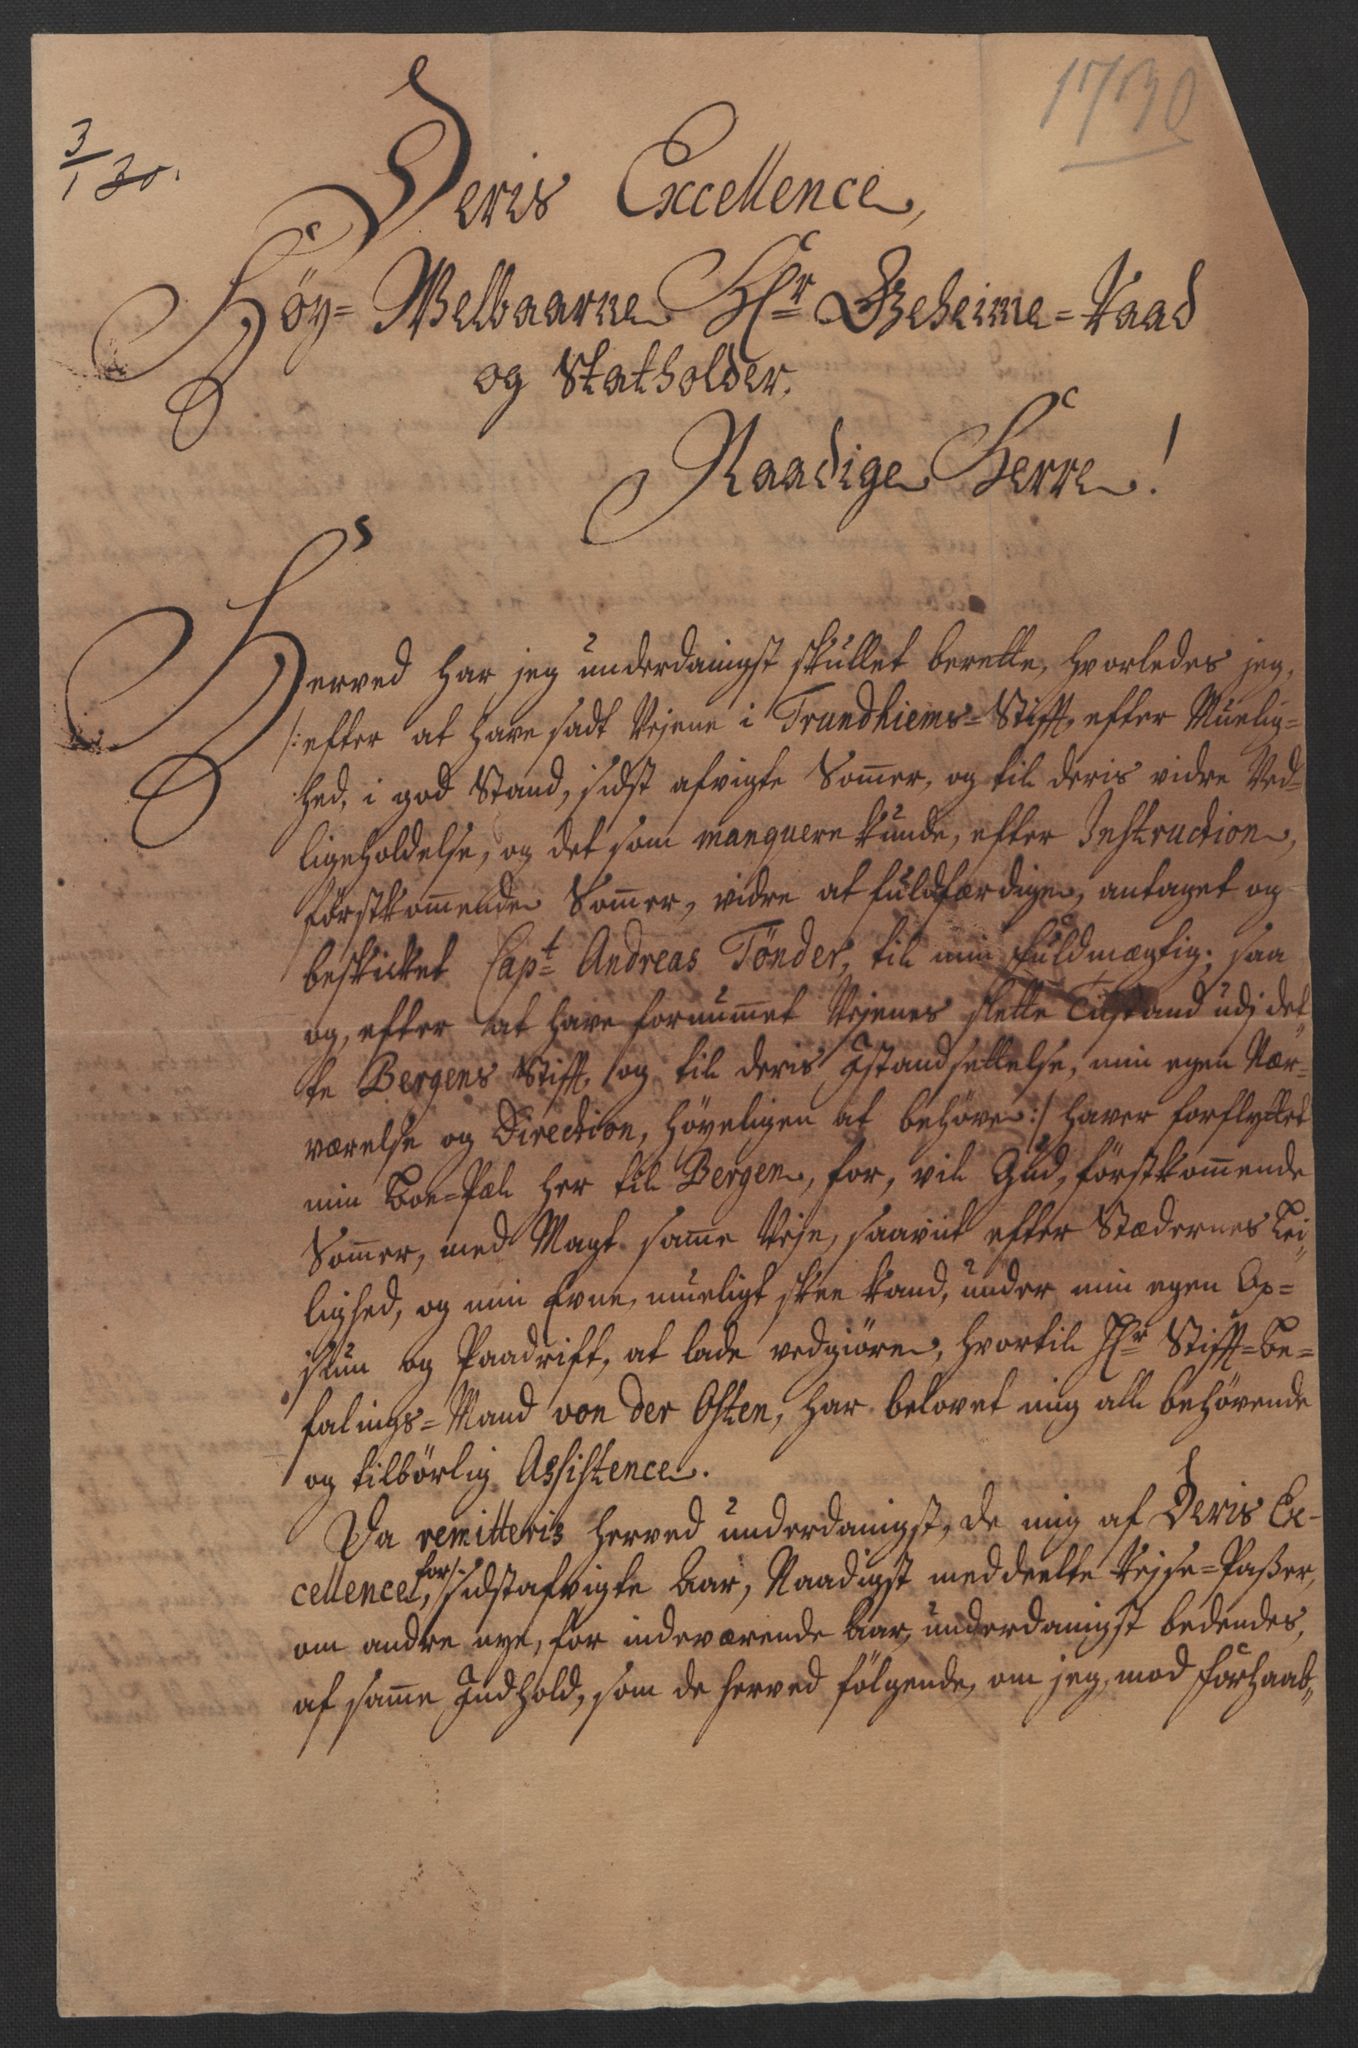 1730
3/1 30.
Deris Excellence,
Höy=Welbaarne Hr Geheime=Raad
og Statholder.
Naadige Herre!
Herved har jeg underdanigst skullet berette, hvorledes jeg,
/: efter at have sadt Vejene i Trundhiems=Stifft, efter Muelig=
hed, i god Stand, sidst afvigte Som̄er, og til deris vidre Ved=
ligeholdelse, og det som manquere kunde, efter Instruction,
förstkom̄ende Som̄er, vidre at fuldfærdige, antaget og
beskicket Capt Andreas Tönder, til min fuldmægtig; saa
og, efter at have fornum̄et Vejenes slette Tilstand udj det=
te Bergens Stifft, og til deris Istandsettelse, min egen Nær=
værelse og Direction, höyeligen at behöve :/ haver forflyttet
min Boe=Pæl her til Bergen, for, vil Gud, förstkom̄ende
Som̄er, med Magt sam̄e Veje, saavit efter Stædernes Lei=
lighed, og min Evne, mueligt skee kand, under min egen Op=
siun og Paadrift, at lade vedgiöre, hvortil Hr Stifft=be=
falings=Mand von der Osten, har belovet mig all behövende
og tilbörlig Assistence.
Da remitteris herved underdanigst, de mig af Deris Ex=
cellence, for sidstafvigte Aar, Naadigst meddeelte Rejse=Paßer,
om andre nye, for indeværende Aar, underdanigst bedendes,
af sam̄e Indhold, som de herved fölgende, om jeg, mod forhaab=